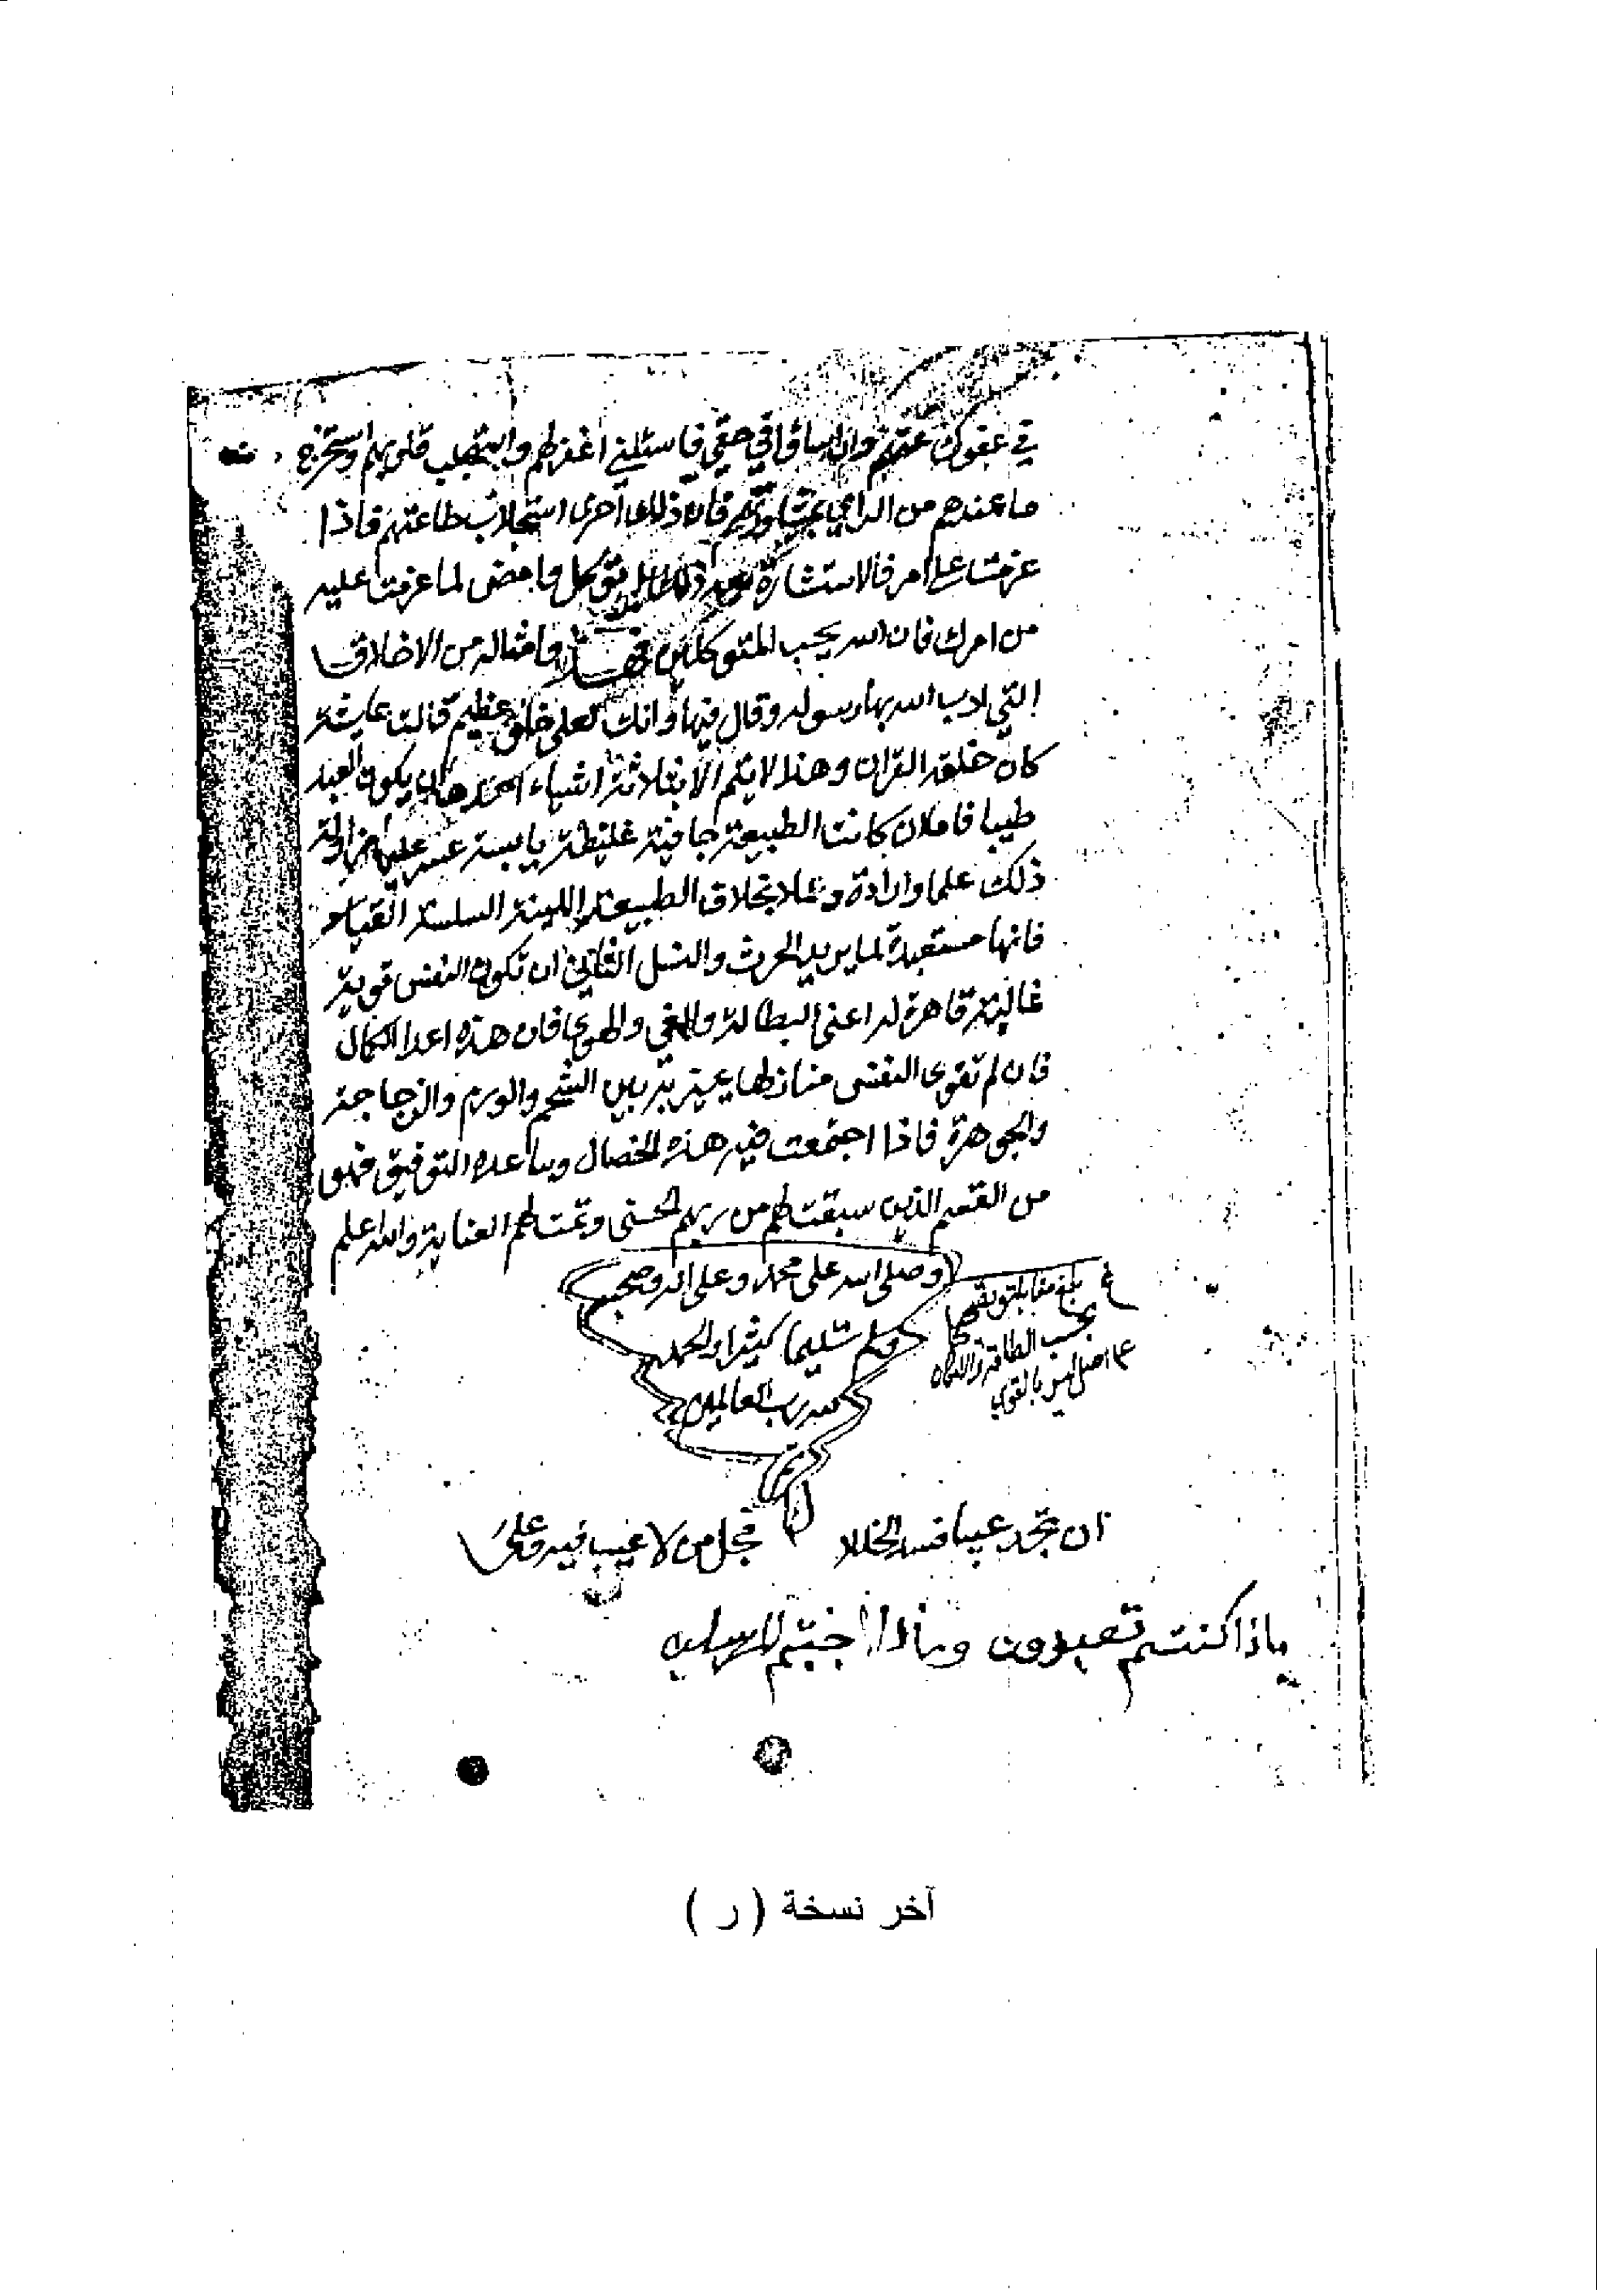 في عفوك عنهم وان اساؤا في حقي فاسئلني اغفر لهم واستجلب قلوبهم واستخرج
ما عندهم من الراي بمشاورتهم فان ذلك احرى استجلاب طاعتهم فاذا
عزمت على امر فالاستشارة بعد ذلك بل توكل وامض لما عزمت عليه
من امرك فان الله يحب المتوكلين فهذا وامثاله من الاخلاق
التي ادب الله بها رسوله وقال فيها وانك لعلى خلق عظيم قالت عايشة
كان خلقه القران وهذا لا يتم الا بثلاثة اشياء احدها ان يكون العبد
طيبا فاما ان كانت الطبيعة جافية غليظة يابسة عسر عليها مزاولة
ذلك علما وارادة وعملا بخلاف الطبيعة اللينة السلسة القياد
فانها مستعدة لما يريد الحرث والنسل الثاني ان تكون النفس قوية
غالبة قاهرة لداعي البطالة والغي والهوى فان هذه اعدا الكمال
فان لم تقوى النفس منازلها يميز به بين الشحم والورم والزجاجة
والجوهرة فاذا اجتمعت فيه هذه الخصال وساعده التوفيق فهو
من القسم الذين سبقت لهم من ربهم الحسنى وتمت لهم العناية والله اعلم
وصلى الله على محمد وعلى اله وصحبه
وسلم تسليما كثيرا والحمد
لله رب العالمين
تم
بلغ مقابلة
بحسب الطاقة والامكان
على اصل ليس بالقوي
ان تجد عيبا فسد الخللا فجل من لا عيب فيه وعلا
ماذا كنتم تعبدون وماذا اجبتم المرسلين
آخر نسخة ( ر )